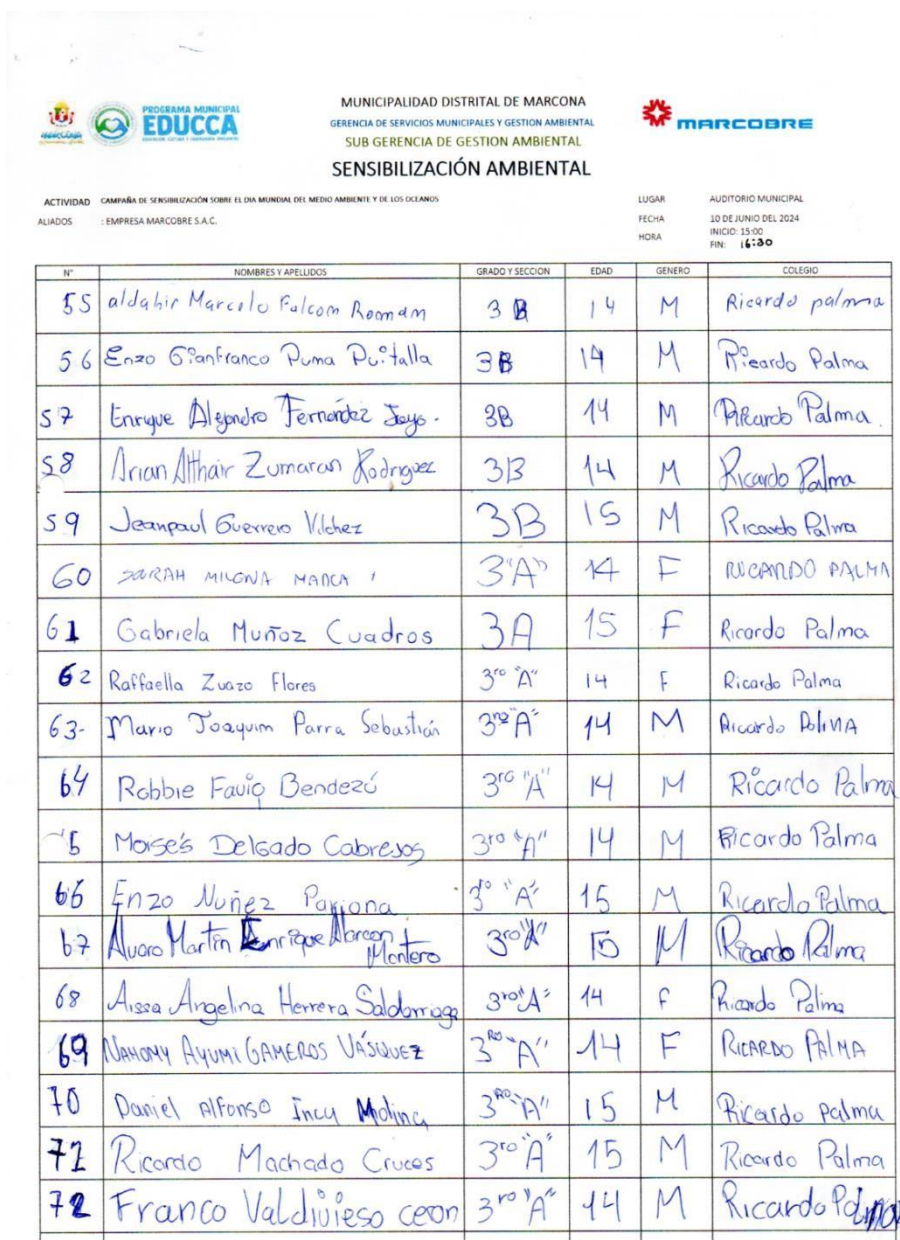 MUNICIPALIDAD DISTRITAL DE MARCONA
GERENCIA DE SERVICIOS MUNICIPALES Y GESTION AMBIENTAL
SUB GERENCIA DE GESTION AMBIENTAL
SENSIBILIZACIÓN AMBIENTAL
PROGRAMA MUNICIPAL
EDUCCA
MARCOBRE
ACTIVIDAD CAMPAÑA DE SENSIBILIZACIÓN SOBRE EL DIA MUNDIAL DEL MEDIO AMBIENTE Y DE LOS OCEANOS
ALIADOS : EMPRESA MARCOBRE S.A.C.
LUGAR AUDITORIO MUNICIPAL
FECHA 10 DE JUNIO DEL 2024
HORA INICIO: 15:00
FIN: 16:30
N° NOMBRES Y APELLIDOS GRADO Y SECCION EDAD GENERO COLEGIO
55 aldahir Marcelo Falcom Roman 3 B 14 M Ricardo palma
56 Enzo Gianfranco Puma 3B 14 M Ricardo Palma
57 Enrique Alejandro Fernández 3B 14 M Ricardo Palma
58 Arian Althair Zumaran Rodriguez 3B 14 M Ricardo Palma
59 Jeanpaul Guerrero Vilchez 3B 15 M Ricardo Palma
60 SARAH MILENA MARCA 3"A" 14 F RICARDO PALMA
61 Gabriela Muñoz Cuadros 3A 15 F Ricardo Palma
62 Raffaella Zuazo Flores 3ro "A" 14 F Ricardo Palma
63- Mario Joaquim Parra Sebastián 3ro "A" 14 M Ricardo PalMA
64 Robbie Favio Bendezú 3ro "A" 14 M Ricardo Palma
5 Moisés Delgado Cabrejos 3ro "A" 14 M Ricardo Palma
66 Enzo Nuñez Pariona 3ro "A" 15 M Ricardo Palma
67 Alvaro Martin Enrique Alarcon Montero 3ro "A" 15 M Ricardo Palma
68 Aissa Angelina Herrera Saldarriaga 3ro "A" 14 F Ricardo Palma
69 NAHOMY AYUMI GAMEROS VÁSQUEZ 3RO "A" 14 F RICARDO PALMA
70 Daniel Alfonso Incu Molina 3RO "A" 15 M Ricardo palma
71 Ricardo Machado Cruces 3ro "A" 15 M Ricardo Palma
72 Franco Valdivieso ceron 3ro "A" 14 M Ricardo Palma